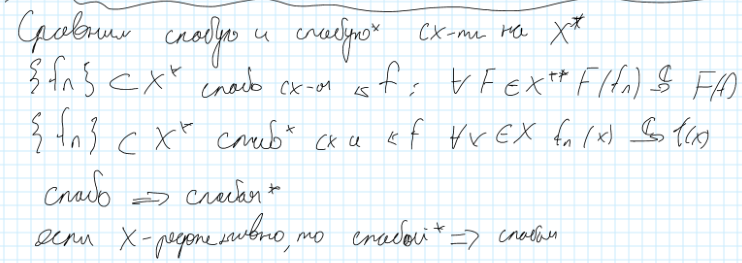 Сравним слабую и слабую* сх-ти на X*
{fn} ⊂ X* слабо сх-ся к f : ∀ F ∈ X** F(fn) →^ℂ F(f)
{fn} ⊂ X* слаб* сх-ся к f ∀x ∈ X fn(x) →^ℂ f(x)
слабо ⇒ слабая*
если X-рефлексивно, то слабой* ⇒ слабая